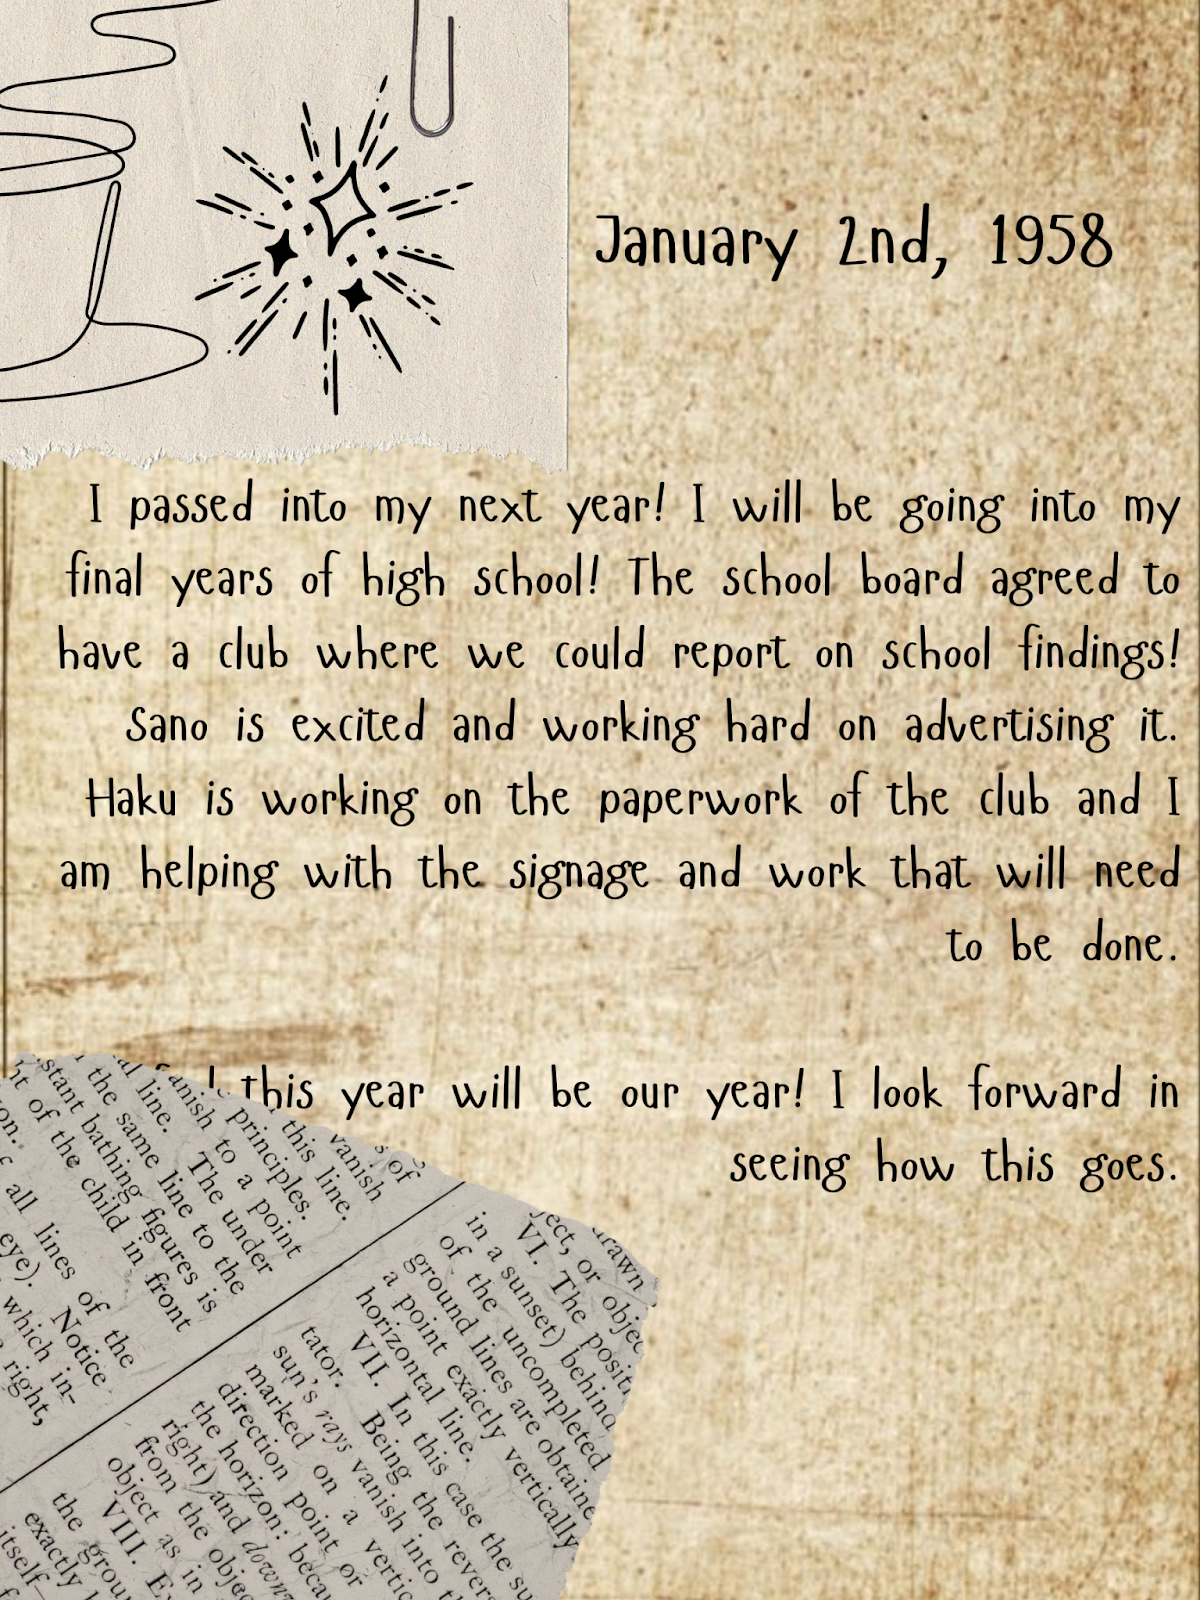 January 2nd, 1958
I passed into my next year! I will be going into my
final years of high school! The school board agreed to
have a club where we could report on school findings!
Sano is excited and working hard on advertising it.
Haku is working on the paperwork of the club and I
am helping with the signage and work that will need
to be done.
this year will be our year! I look forward in
seeing how this goes.
al line.
the same line to the
stant bathing figures is
of the child in front
anish to a point
The under
principles.
this line.
vanish
of
all lines of the
eye). Notice
which in-
right,
drawn
ject, or objec
VI. The positi
in a sunset) behind
of the uncompleted
ground lines are obtaine
a point exactly vertically
horizontal line.
VII. In this case the su
tator. Being the revers
sun's rays vanish into t
marked on a vertic
direction point or
the horizon: becau
right) and down
from the objec
object as in
VIII.
the grou
exactly
itself—